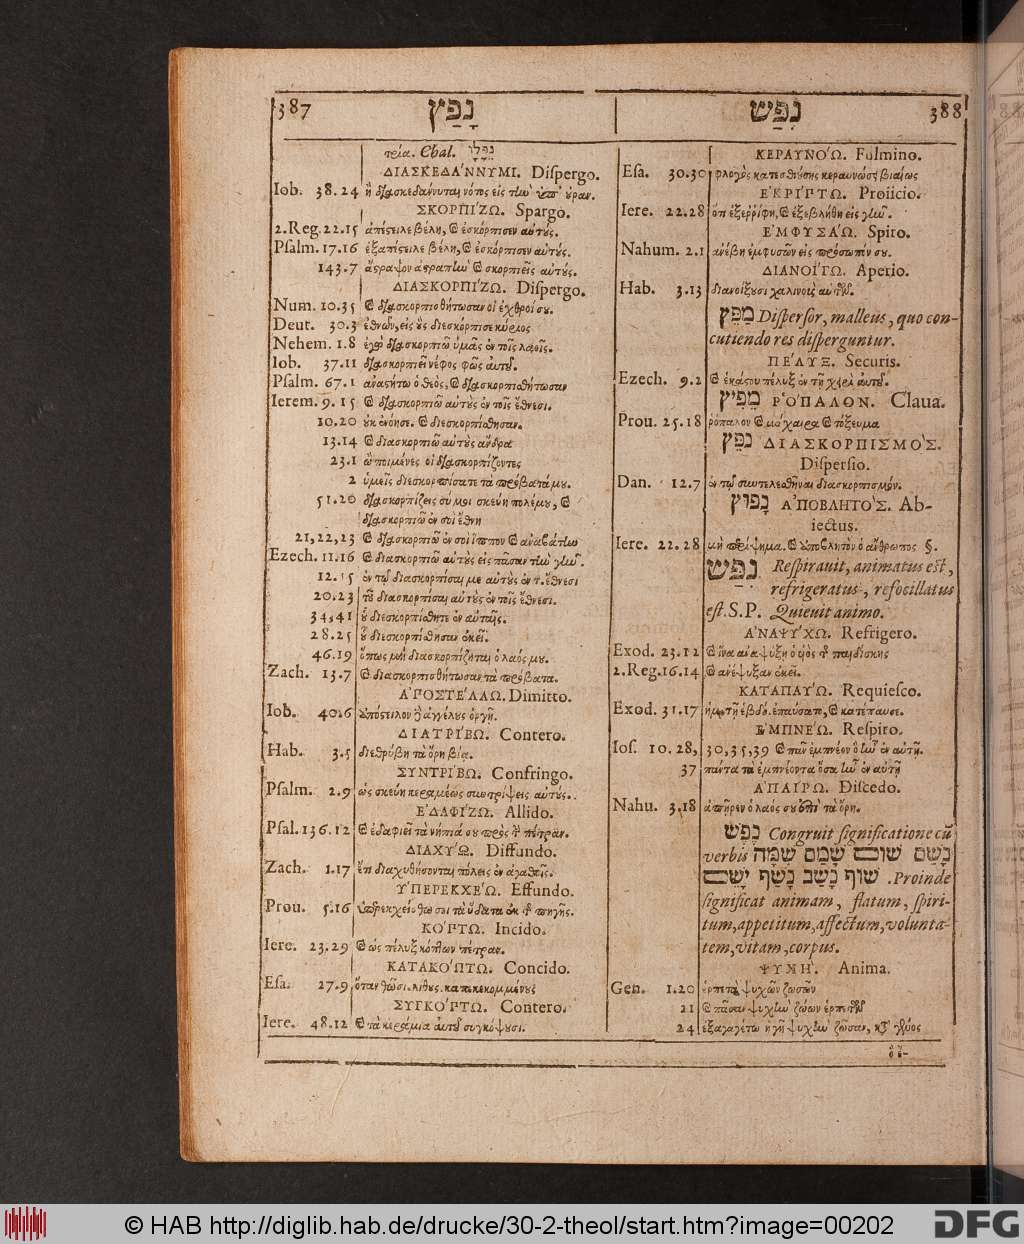 387 נָפַץ
τρία. Chal. נְפָלָן
ΔΙΑΣΚΕΔΑ΄ΝΝΥΜΙ. Dispergo.
Iob. 38.24 ἢ διασκεδάννυται νότος εἰς τὴν ὑπ' οὐραν.
ΣΚΟΡΠΙ΄ΖΩ. Spargo.
2.Reg.22.15 ἀπέστειλε βέλη, & ἐσκόρπισεν αὐτούς.
Psalm. 17.16 ἐξαπέστειλε βέλη, & ἐσκόρπισεν αὐτούς.
143.7 ἄστραψον ἀστραπὴν & σκορπιεῖς αὐτούς.
ΔΙΑΣΚΟΡΠΙ΄ΖΩ. Dispergo.
Num. 10.35 & διασκορπισθήτωσαν οἱ ἐχθροί σου.
Deut. 30.3 ἐθνῶν, εἰς οὓς διεσκόρπισε κύριος
Nehem. 1.8 ἐγὼ διασκορπιῶ ὑμᾶς ἐν τοῖς λαοῖς.
Iob. 37.11 διασκορπιεῖ νέφος φῶς αὐτοῦ.
Psalm. 67.1 ἀναστήτω ὁ θεὸς, & διασκορπισθήτωσαν
Ierem. 9.15 & διασκορπιῶ αὐτοὺς ἐν τοῖς ἔθνεσι.
10.20 οὐκ ἐνόησε. & διεσκορπίσθησαν.
13.14 & διασκορπιῶ αὐτοὺς ἄνδρα
23.1 ὦ ποιμένες οἱ διασκορπίζοντες
2 ὑμεῖς διεσκορπίσατε τὰ πρόβατά μου.
51.20 διασκορπίζεις σύ μοι σκεύη πολέμου, &
διασκορπιῶ ἐν σοὶ ἔθνη
21,22,23 & διασκορπιῶ ἐν σοὶ ἵππον & ἀναβάτην
Ezech. 11.16 & διασκορπιῶ αὐτοὺς εἰς πᾶσαν τὴν γῆν.
12.15 ἐν τῷ διασκορπίσαι με αὐτοὺς ἐν τ. ἔθνεσι
20.23 τοῦ διασκορπίσαι αὐτοὺς ἐν τοῖς ἔθνεσι.
34,41 οὗ διεσκορπίσθητε ἐν αὐταῖς.
28.25 οὗ διεσκορπίσθησαν ἐκεῖ.
46.19 ὅπως μὴ διασκορπίζηται ὁ λαός μου.
Zach. 13.7 & διασκορπισθήτωσαν τὰ πρόβατα.
Α᾿ΠΟΣΤΕ΄ΛΛΩ. Dimitto.
Iob. 40.6 ἀπόστειλον δὲ ἀγγέλους ὀργῇ.
ΔΙΑΤΡΙ΄ΒΩ. Contero.
Hab. 3.5 διεθρύβη τὰ ὄρη βίᾳ.
ΣΥΝΤΡΙ΄ΒΩ. Confringo.
Psalm. 2.9 ὡς σκεύη κεραμέως συντρίψεις αὐτούς.
Ε᾿ΔΑΦΙ΄ΖΩ. Allido.
Psal.136.12 & ἐδαφιεῖ τὰ νήπιά σου πρὸς τ πέτραν.
ΔΙΑΧΥ΄Ω. Diffundo.
Zach. 1.17 ἔτι διαχυθήσονται πόλεις ἐν ἀγαθοῖς.
Υ῾ΠΕΡΕΚΧΕ΄Ω. Effundo.
Prou. 5.16 ὑπερεκχείσθω σοι τὰ ὕδατα ἐκ τ πηγῆς.
ΚΟ΄ΠΤΩ. Incido.
Iere. 23.29 & ὡς πέλυξ κόπτων πέτραν.
ΚΑΤΑΚΟ΄ΠΤΩ. Concido.
Esa. 27.9 ὅταν θῶσι. λίθους. κατακεκομμένους
ΣΥΓΚΟ΄ΠΤΩ. Contero.
Iere. 48.12 & τὰ κεράμια αὐτοῦ συγκόψουσι.
נִפַּשׁ 388
ΚΕΡΑΥΝΟ΄Ω. Fulmino.
Esa. 30.30 φλογὸς κατεσθιούσης κεραυνώσει βιαίως
Ε᾿ΚΡΙ΄ΠΤΩ. Proiicio.
Iere. 22.28 ὅτι ἐξερρίφη, & ἐξεβλήθη εἰς γῆν.
Ε᾿ΜΦΥΣΑ΄Ω. Spiro.
Nahum. 2.1 ἀνέβη ἐμφυσῶν εἰς πρόσωπόν σου.
ΔΙΑΝΟΙ΄ΓΩ. Aperio.
Hab. 3.13 διανοίξουσι χαλινοὺς αὐτῶν.
מַפֵּץ Dispersor, malleus, quo con-
cutiendo res disperguntur.
ΠΕ΄ΛΥΞ. Securis.
Ezech. 9.2 & ἑκάστου πέλυξ ἐν τῇ χειρὶ αὐτοῦ.
מֵפִיץ Ρ῾Ο΄ΠΑΛΟΝ. Claua.
Prou. 25.18 ῥόπαλον & μάχαιρα & τόξευμα
נִפֵּץ ΔΙΑΣΚΟΡΠΙΣΜΟ΄Σ.
Dispersio.
Dan. 12.7 ἐν τῷ συντελεσθῆναι διασκορπισμόν.
נָפוּץ Α᾿ΠΟΒΛΗΤΟ΄Σ. Ab-
iectus.
Iere. 22.28 μὴ περίψημα. & ἀπόβλητον ὁ ἄνθρωπος §.
נִפַּשׁ Respirauit, animatus est,
refrigeratus, refocillatus
est. S.P. Quieuit animo.
Α᾿ΝΑΨΥ΄ΧΩ. Refrigero.
Exod. 23.12 & ἵνα ἀναψύξῃ ὁ υἱὸς τ παιδίσκης
2.Reg.16.14 & ἀνέψυξαν ἐκεῖ.
ΚΑΤΑΠΑΥ΄Ω. Requiesco.
Exod. 31.17 ἡμ. τῇ ἑβδό. ἐπαύσατο, & κατέπαυσε.
Ε᾿ΜΠΝΕ΄Ω. Respiro.
Ios. 10.28, 30,35,39 & πᾶν ἐμπνέον ὃ ἦν ἐν αὐτῇ.
37 πάντα τὰ ἐμπνέοντα ὅσα ἦν ἐν αὐτῇ
Α᾿ΠΑΙ΄ΡΩ. Discedo.
Nahu. 3.18 ἀπῆρεν ὁ λαός σου ἐπὶ τὰ ὄρη.
נֶפֶשׁ Congruit significatione cũ
verbis נָשַׁם שׁוּם שָׁמַם שָׁמָה
שׁוּף נָשַׁב נָשַׁף יָשַׁם. Proinde
significat animam, flatum, spiri-
tum, appetitum, affectum, volunta-
tem, vitam, corpus.
ΨΥΧΗ΄. Anima.
Gen. 1.20 ἑρπετὰ ψυχῶν ζωσῶν
21 & πᾶσαν ψυχὴν ζώων ἑρπετῶν
24 ἐξαγαγέτω ἡ γῆ ψυχὴν ζῶσαν, κτ̃ γένος
© HAB http://diglib.hab.de/drucke/30-2-theol/start.htm?image=00202
DFG